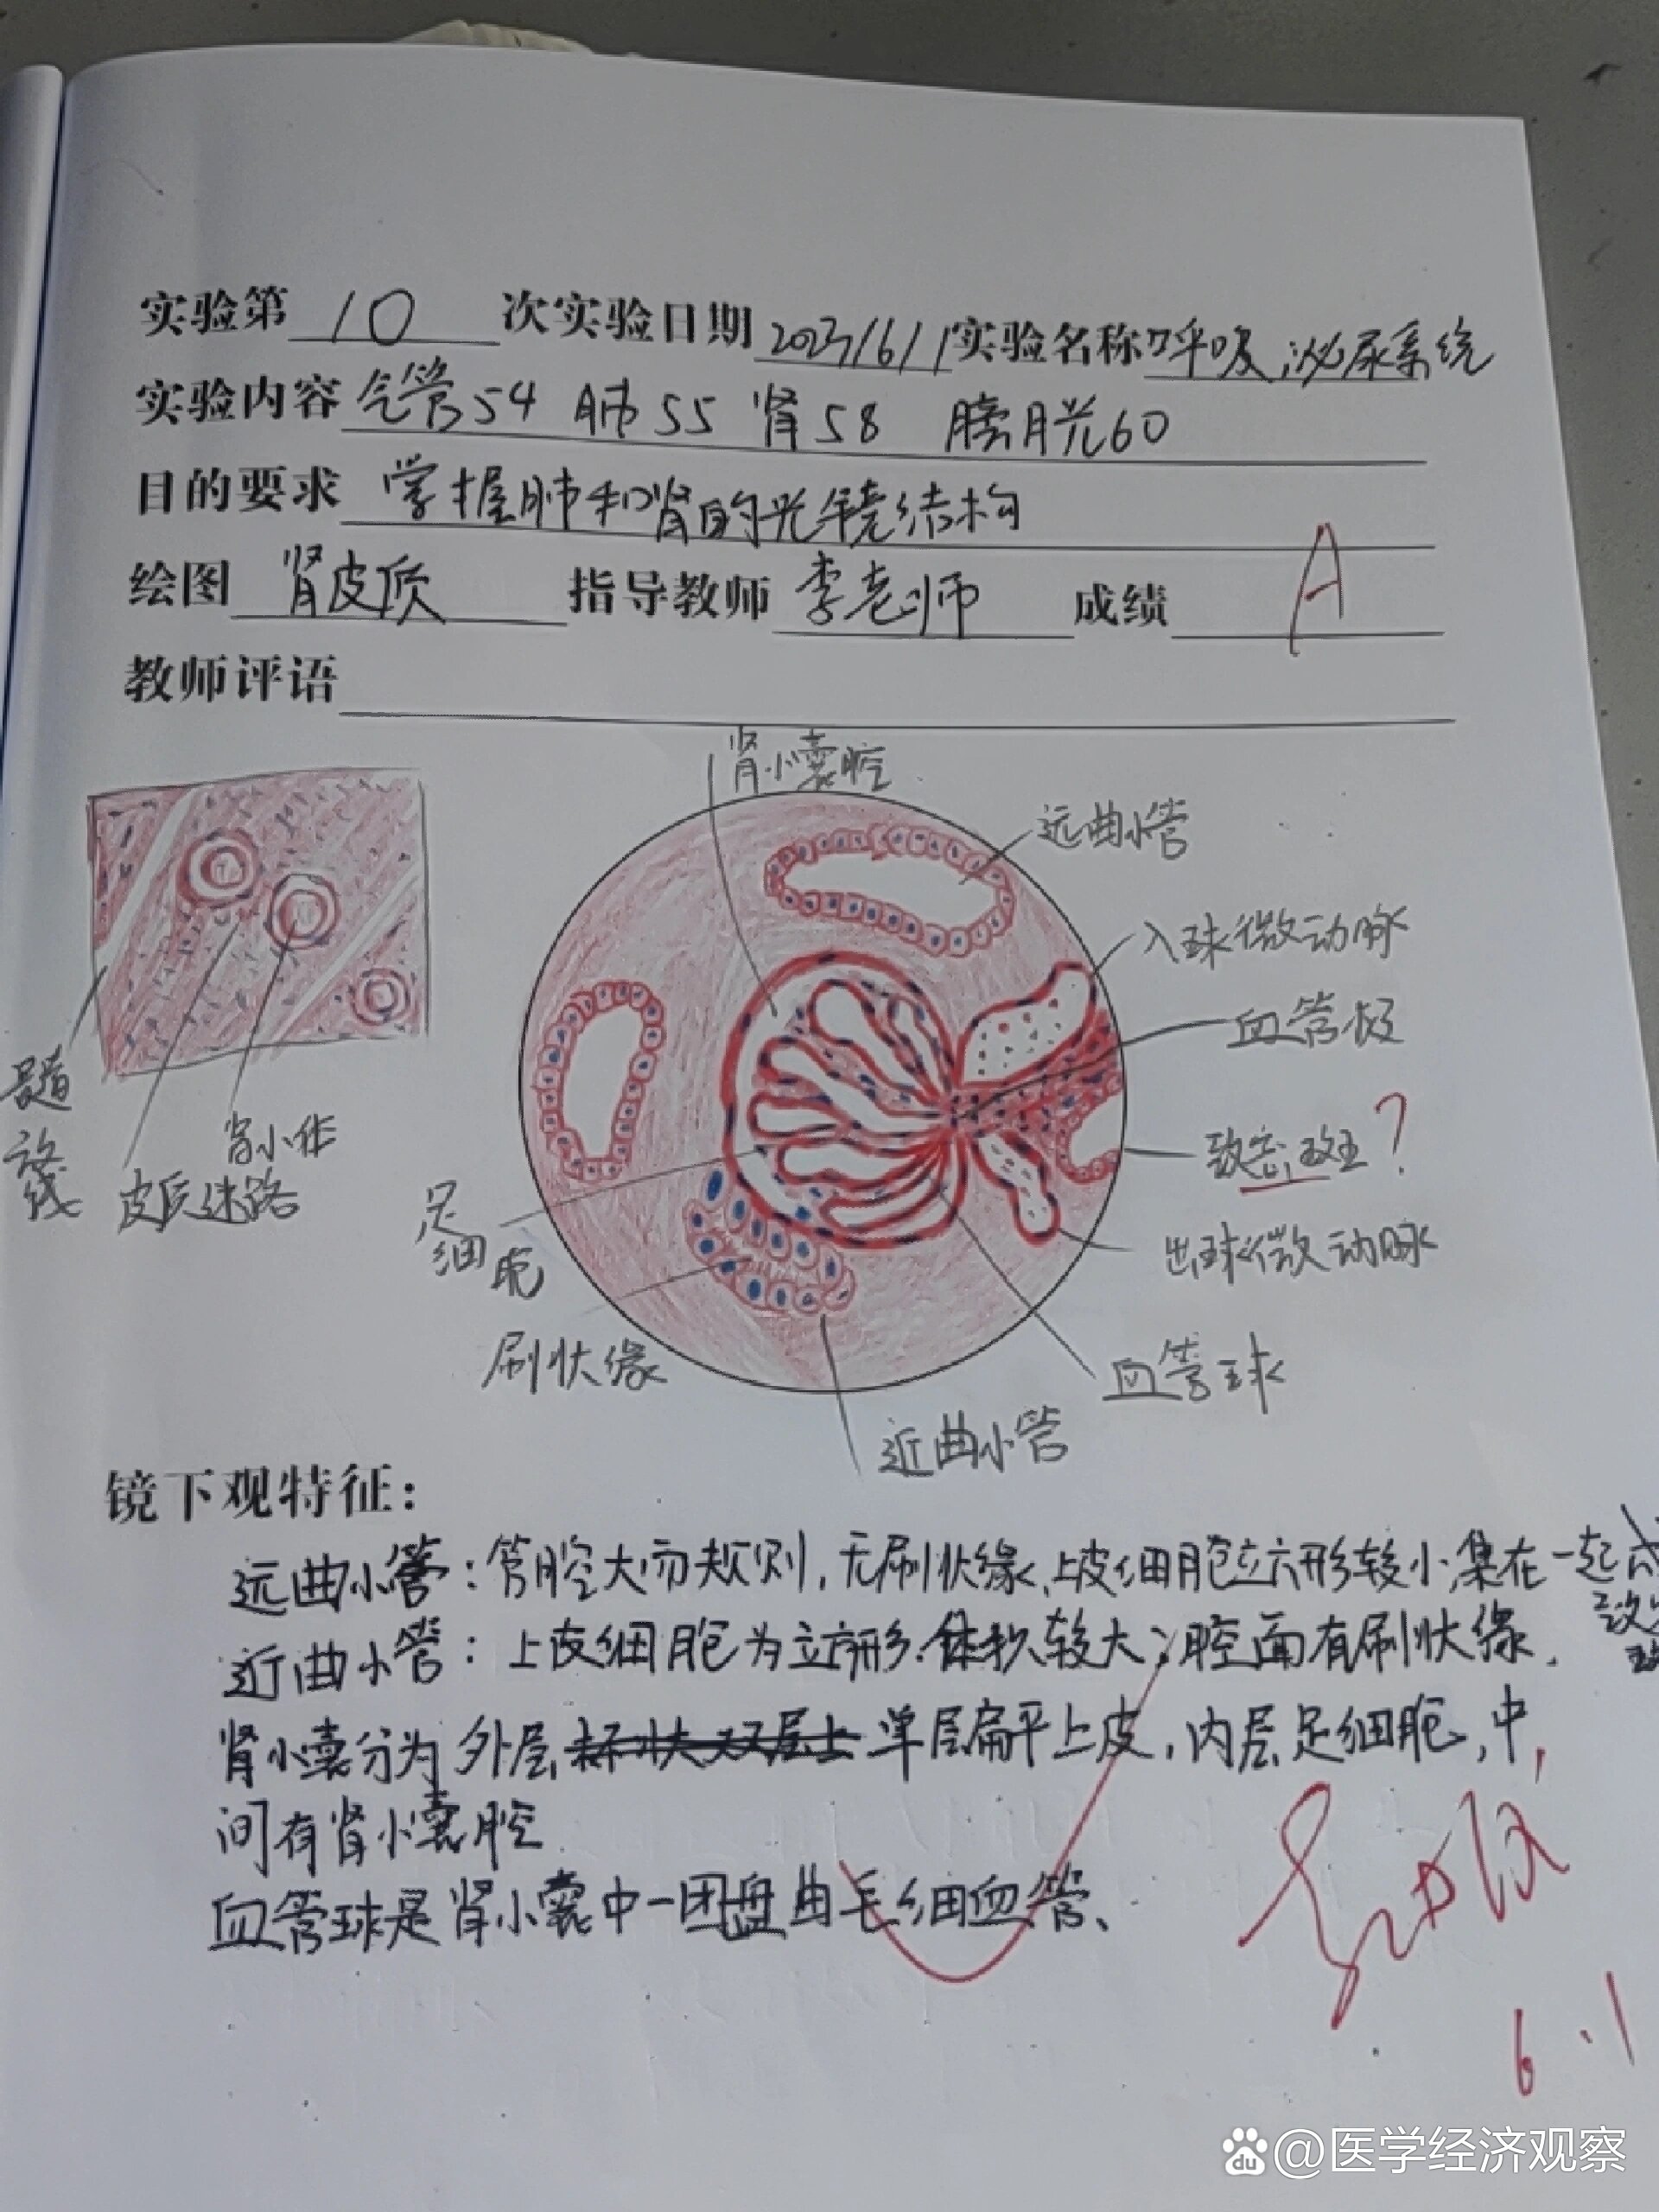 实验第 10 次实验日期 2023/6/1 实验名称 呼吸泌尿系统
实验内容 气管54 肺55 肾58 膀胱60
目的要求 掌握肺和肾的光镜结构
绘图 肾皮质 指导教师 李老师 成绩 A
教师评语
肾小囊腔
远曲小管
入球微动脉
血管极
致密斑?
出球微动脉
血管球
近曲小管
刷状缘
足细胞
髓放线
皮质迷路
肾小体
镜下观特征:
远曲小管:管腔大而规则,无刷状缘,上皮细胞立方形较小,集在一起
近曲小管:上皮细胞为立方形.体积较大;腔面有刷状缘.
肾小囊分为外层单层扁平上皮,内层足细胞,中
间有肾小囊腔
血管球是肾小囊中一团盘曲毛细血管、
6.1
Baidu @医学经济观察